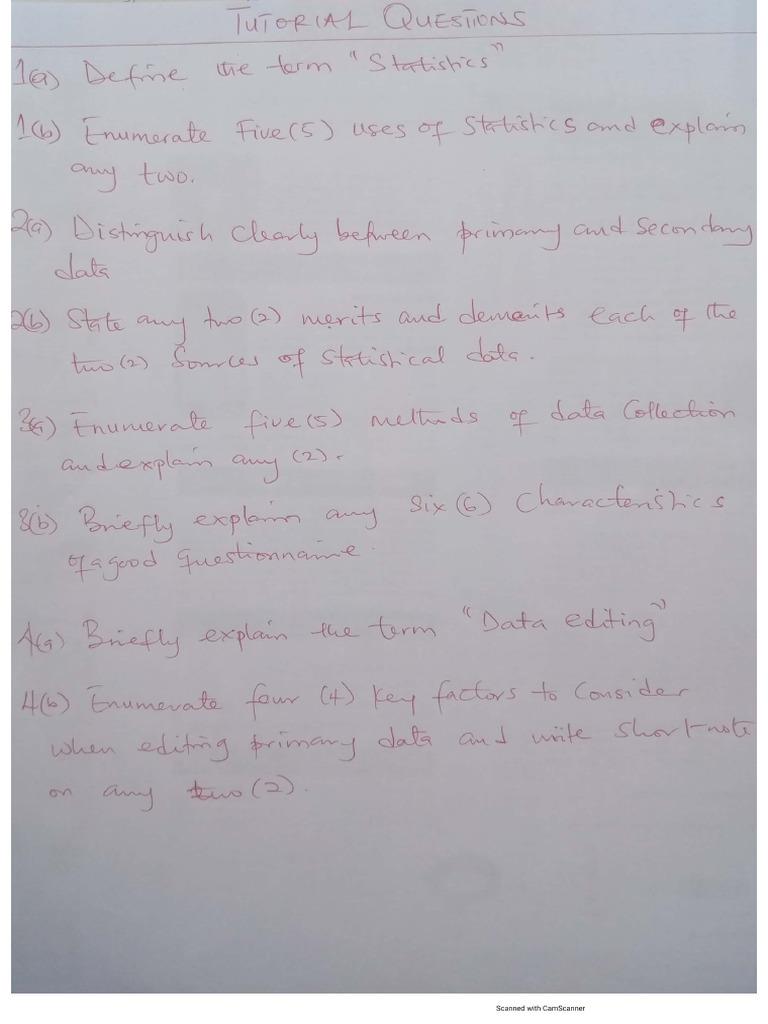 TUTORIAL QUESTIONS
1(a) Define the term "Statistics"
1(b) Enumerate Five (5) uses of Statistics and explain
any two.
2(a) Distinguish clearly between primary and Secondary
data
2(b) State any two (2) merits and demerits each of the
two (2) Sources of Statistical data.
3(a) Enumerate five (5) methods of data Collection
and explain any (2).
3(b) Briefly explain any six (6) Characteristics
of a good questionnaire.
4(a) Briefly explain the term "Data editing"
4(b) Enumerate four (4) key factors to Consider
when editing primary data and write Short note
on any two (2).
Scanned with CamScanner